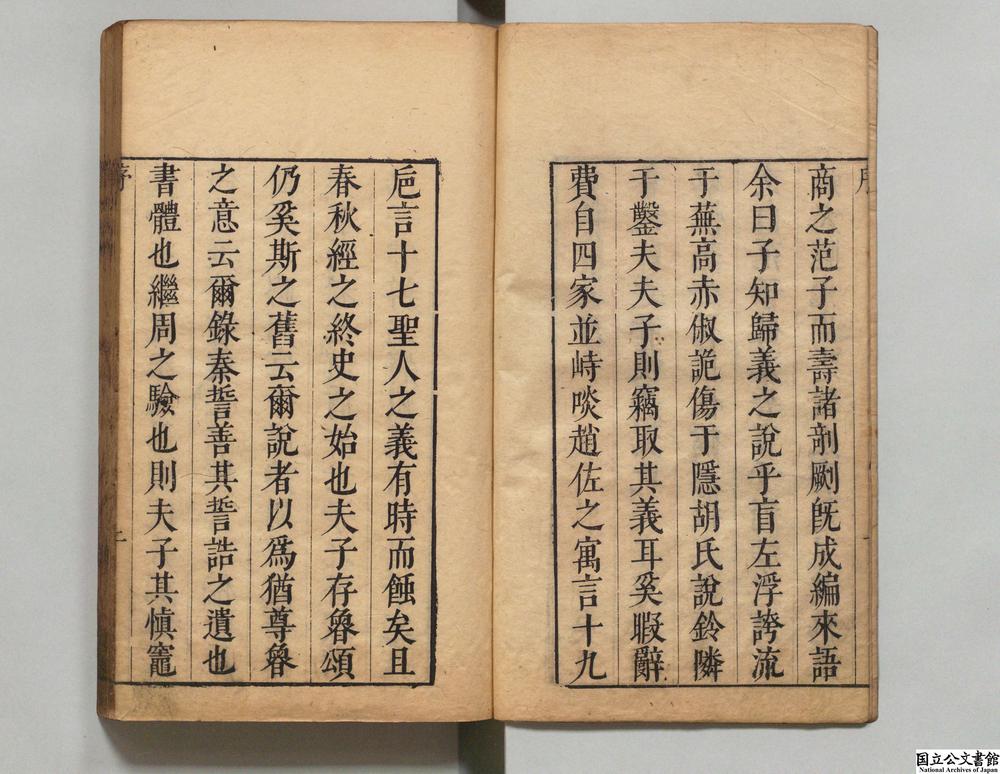 商之范子而壽諸剞劂旣成編來語
余曰子知歸義之說乎盲左浮誇流
于蕪高赤俶詭傷于隱胡氏說鈴隣
于鑿夫夫子則竊取其義耳奚暇辭
費自四家並峙啖趙佐之寓言十九
巵言十七聖人之義有時而蝕矣且
春秋經之終史之始也夫子存魯頌
仍奚斯之舊云爾說者以爲猶尊魯
之意云爾錄秦誓善其誓誥之遺也
書體也繼周之驗也則夫子其愼竈
序
国立公文書館
National Archives of Japan